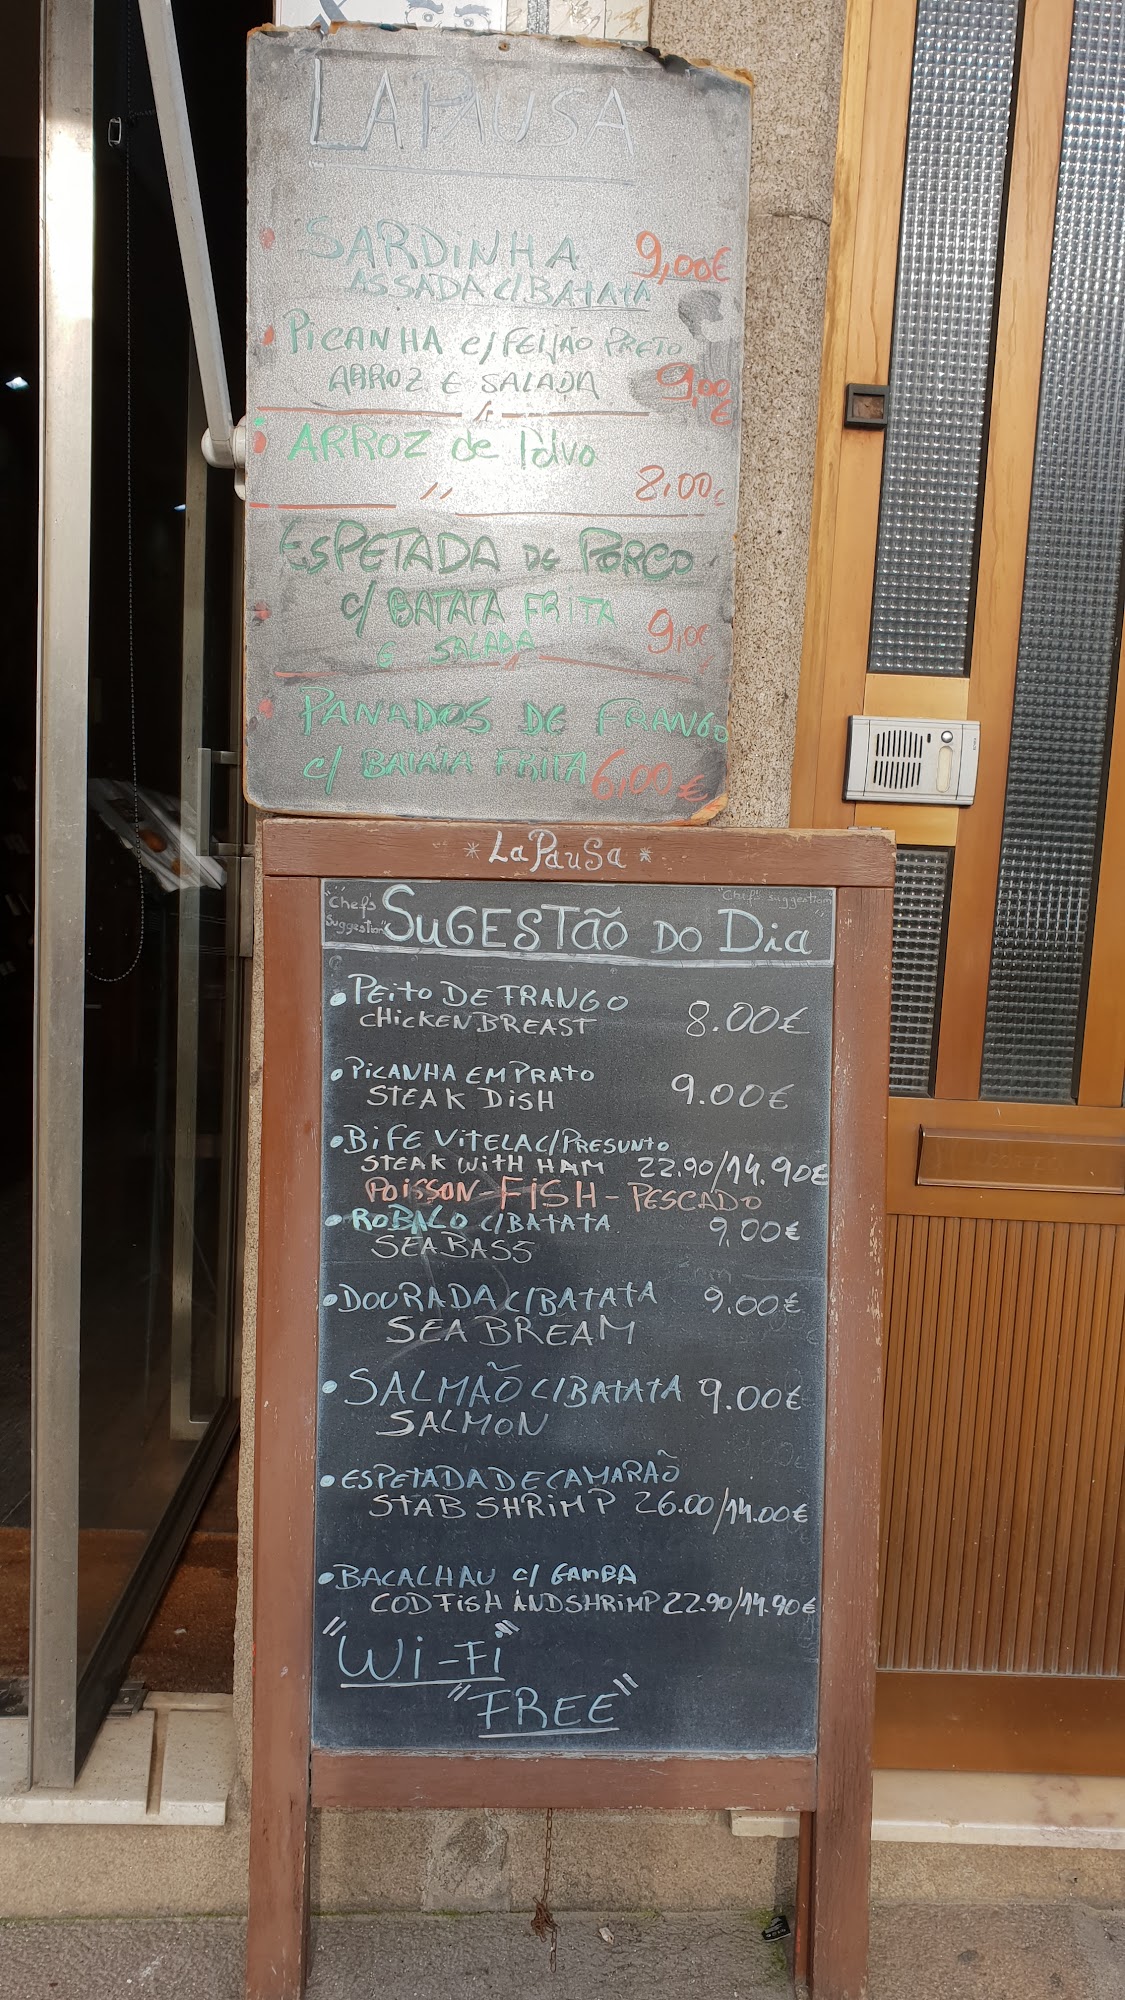 LAPAUSA
SARDINHA 9,00€
ASSADA C/BATATA
PICANHA C/FEIJÃO PRETO
ARROZ E SALADA 9,00€
ARROZ de Polvo
8,00€
ESPETADA DE PORCO
C/ BATATA FRITA
E SALADA 9,00€
PANADOS DE FRANGO
C/ BATATA FRITA 6,00€
* LaPauSa *
"Chefs Suggestion" SUGESTÃO DO Dia "Chef's suggestion"
• PEITO DE FRANGO
CHICKEN BREAST 8.00€
• PICANHA EM PRATO
STEAK DISH 9.00€
• BIFE VITELA C/PRESUNTO
STEAK WITH HAM 22.90/14.90€
POISSON - FISH - PESCADO
• ROBALO C/BATATA 9,00€
SEABASS
• DOURADA C/BATATA 9.00€
SEA BREAM
• SALMÃO C/BATATA 9.00€
SALMON
• ESPETADA DE CAMARÃO
STAB SHRIMP 26.00/14.00€
• BACALHAU C/ GAMBA
CODFISH AND SHRIMP 22.90/14.90€
"Wi-Fi"
"FREE"